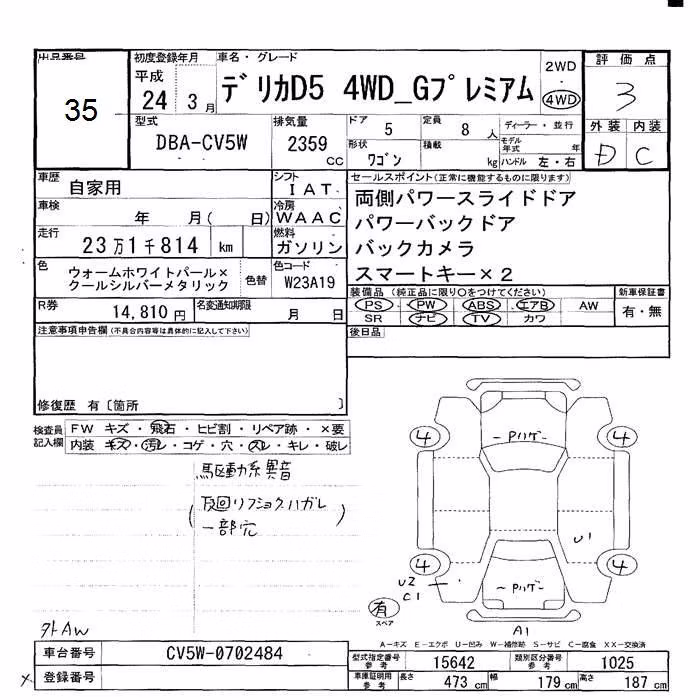 出品番号
35
初度登録年月
平成
24 3月
車名・グレード
デリカD5 4WD_Gプレミアム
2WD
4WD
評価点
3
型式
DBA-CV5W
排気量
2359
CC
ドア
5
定員
8 人
ディーラー・並行
形状
ワゴン
積載
kg
モデル年式
年
ハンドル 左・右
外装 内装
D C
車歴
自家用
シフト
IAT
車検
年 月( 日)
冷房
WAAC
走行
23万1千814 km
燃料
ガソリン
色
ウォームホワイトパール×
クールシルバーメタリック
色替
色コード
W23A19
R券
14,810 円
名変通知期限
月 日
セールスポイント(正常に機能するものに限ります)
両側パワースライドドア
パワーバックドア
バックカメラ
スマートキー×2
装備品 (純正品に限り○をつけてください)
PS PW ABS エアB AW
SR ナビ TV カワ
新車保証書
有・無
注意事項申告欄(不具合内容等は具体的に記入して下さい)
後日品
修復歴 有〔箇所 〕
検査員
記入欄
FW キズ・飛石・ヒビ割・リペア跡・×要
内装 キズ・汚レ・コゲ・穴・スレ・キレ・破レ
駆動系異音
一部穴
4 4
4 4
U1
U2
C1
A1
有
スペア
外AW
A-キズ E-エクボ U-凹み W-補修跡 S-サビ C-腐食 XX-交換済
車台番号
CV5W-0702484
登録番号
×
型式指定番号
参考
15642
類別区分番号
参考
1025
車庫証明用
参考
長さ
473 cm
幅
179 cm
高さ
187 cm